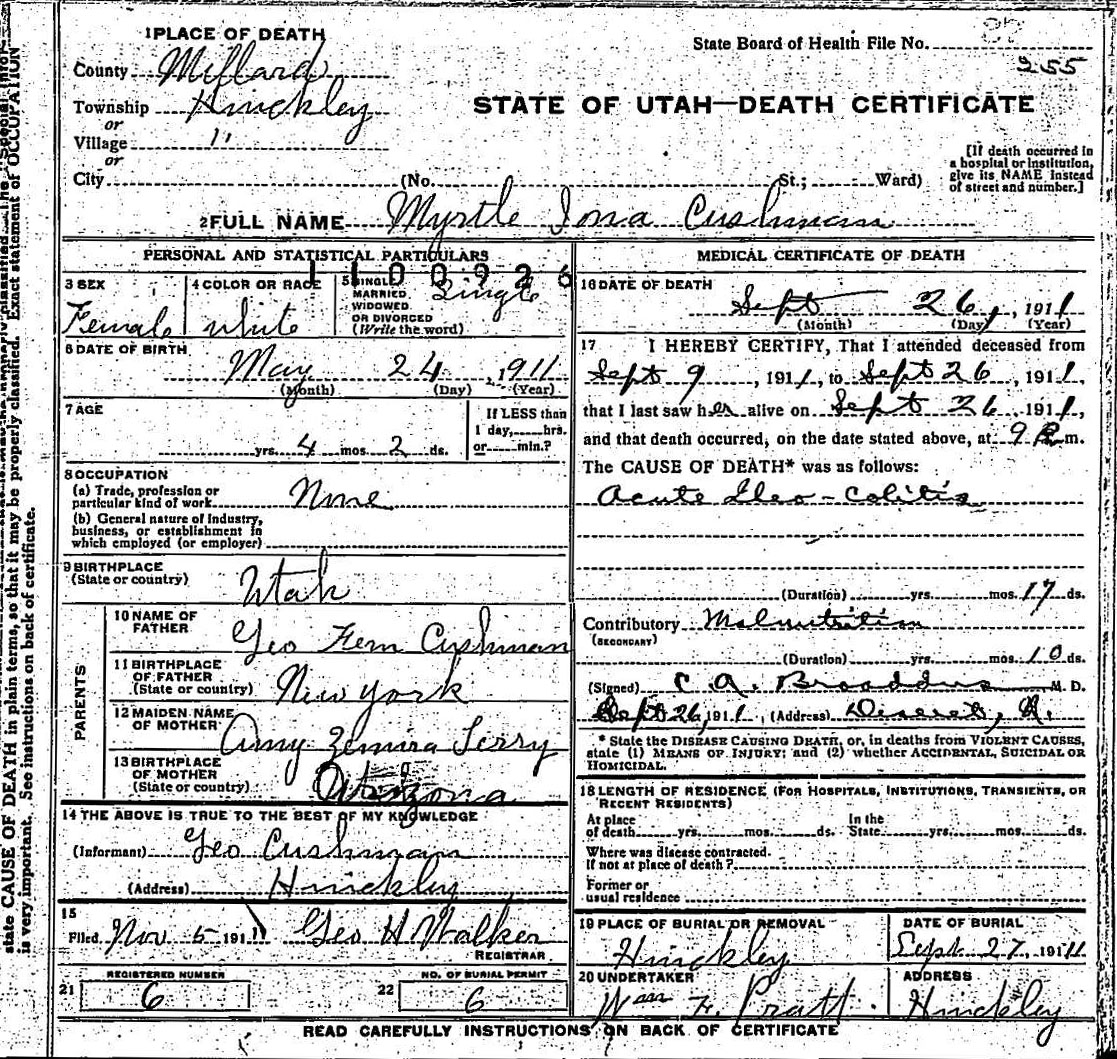 1 PLACE OF DEATH
State Board of Health File No.
255
County Millard
Township Hinckley
or
Village "
or
City (No. St.; Ward)
STATE OF UTAH—DEATH CERTIFICATE
[If death occurred in
a hospital or institution,
give its NAME instead
of street and number.]
2 FULL NAME Myrtle Iona Cushman
PERSONAL AND STATISTICAL PARTICULARS
1100926
3 SEX
Female
4 COLOR OR RACE
white
5 SINGLE
MARRIED
WIDOWED
OR DIVORCED
(Write the word)
Single
6 DATE OF BIRTH
May 24, 1911
(Month) (Day) (Year)
7 AGE
yrs. 4 mos. 2 ds.
If LESS than
1 day, hrs.
or min.?
8 OCCUPATION
(a) Trade, profession or
particular kind of work None
(b) General nature of industry,
business, or establishment in
which employed (or employer)
9 BIRTHPLACE
(State or country) Utah
PARENTS
10 NAME OF
FATHER
Geo Fem Cushman
11 BIRTHPLACE
OF FATHER
(State or country) New York
12 MAIDEN NAME
OF MOTHER
Amy Zemira Terry
13 BIRTHPLACE
OF MOTHER
(State or country)
14 THE ABOVE IS TRUE TO THE BEST OF MY KNOWLEDGE
(Informant) Geo Cushman
(Address) Hinckley
15
Filed Nov 5 1911 Geo H Walker
REGISTRAR
REGISTERED NUMBER
21 6
NO. OF BURIAL PERMIT
22 6
MEDICAL CERTIFICATE OF DEATH
16 DATE OF DEATH
Sept 26, 1911
(Month) (Day) (Year)
17 I HEREBY CERTIFY, That I attended deceased from
Sept 9, 1911, to Sept 26, 1911,
that I last saw her alive on Sept 26, 1911,
and that death occurred, on the date stated above, at 9 m.
The CAUSE OF DEATH* was as follows:
Acute Ileo-Colitis
(Duration) yrs. mos. 17 ds.
Contributory Malnutrition
(SECONDARY)
(Duration) yrs. mos. 10 ds.
(Signed) C. A. Broaddus M. D.
Sept 26, 1911, (Address) Deseret, U.
* State the DISEASE CAUSING DEATH, or, in deaths from VIOLENT CAUSES,
state (1) MEANS OF INJURY; and (2) whether ACCIDENTAL, SUICIDAL OR
HOMICIDAL.
18 LENGTH OF RESIDENCE (FOR HOSPITALS, INSTITUTIONS, TRANSIENTS, OR
RECENT RESIDENTS)
At place In the
of death yrs. mos. ds. State yrs. mos. ds.
Where was disease contracted.
If not at place of death?
Former or
usual residence
19 PLACE OF BURIAL OR REMOVAL
Hinckley
DATE OF BURIAL
Sept. 27, 1911
20 UNDERTAKER
Wm F. Pratt.
ADDRESS
Hinckley
READ CAREFULLY INSTRUCTIONS ON BACK OF CERTIFICATE
state CAUSE OF DEATH in plain terms, so that it may be properly classified. Exact statement of OCCUPATION
is very important. See instructions on back of certificate.